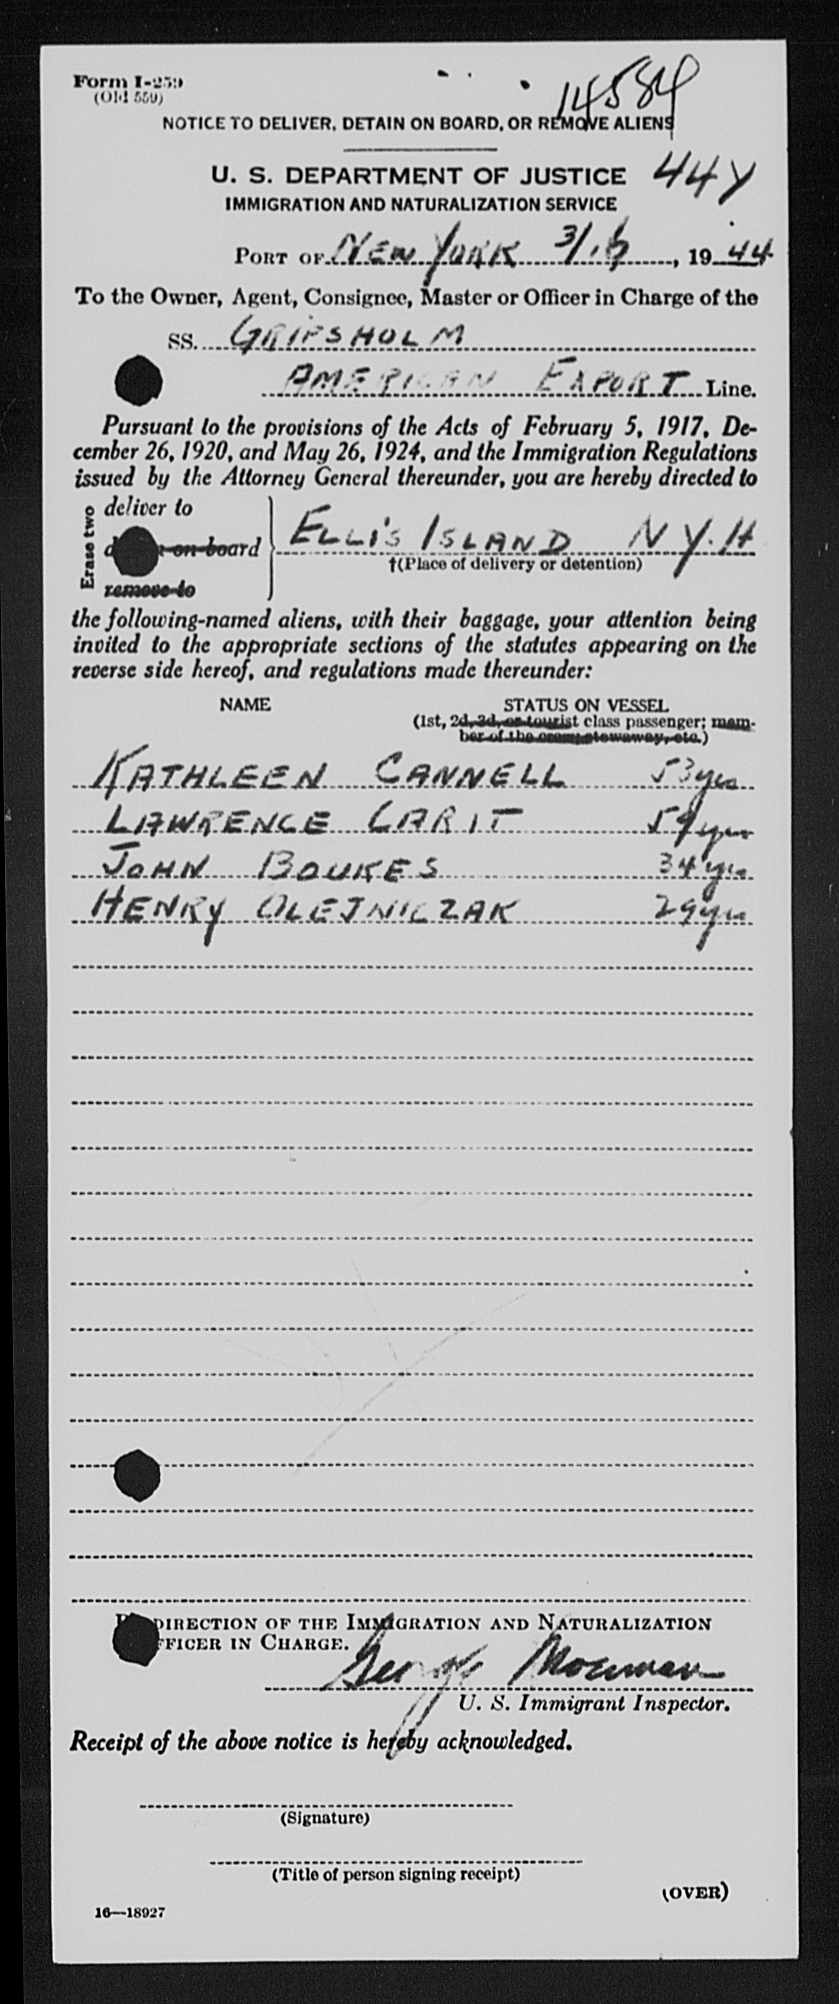 Form I-259
(Old 559)
14584
NOTICE TO DELIVER, DETAIN ON BOARD, OR REMOVE ALIENS
U. S. DEPARTMENT OF JUSTICE
44Y
IMMIGRATION AND NATURALIZATION SERVICE
PORT OF NEW YORK 3/15, 1944
To the Owner, Agent, Consignee, Master or Officer in Charge of the
SS. GRIPSHOLM
AMERICAN EXPORT Line.
Pursuant to the provisions of the Acts of February 5, 1917, De-
cember 26, 1920, and May 26, 1924, and the Immigration Regulations
issued by the Attorney General thereunder, you are hereby directed to
Erase two
deliver to
on board
remove to
ELLIS ISLAND N.Y.H
†(Place of delivery or detention)
the following-named aliens, with their baggage, your attention being
invited to the appropriate sections of the statutes appearing on the
reverse side hereof, and regulations made thereunder:
NAME STATUS ON VESSEL
(1st, 2d, 3d, or tourist class passenger; mem-
ber of the crew, stowaway, etc.)
KATHLEEN CANNELL 53 yrs
LAWRENCE GARIT 59 yrs
JOHN BOUKES 34 yrs
HENRY OLEJNICZAK 29 yrs
DIRECTION OF THE IMMIGRATION AND NATURALIZATION
FFICER IN CHARGE.
George
U. S. Immigrant Inspector.
Receipt of the above notice is hereby acknowledged.
(Signature)
(Title of person signing receipt)
(OVER)
16—18927